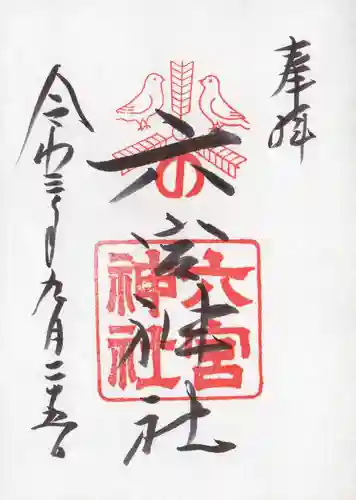 奉拝
六宮神社
六宮神社
令和三年九月二十五日